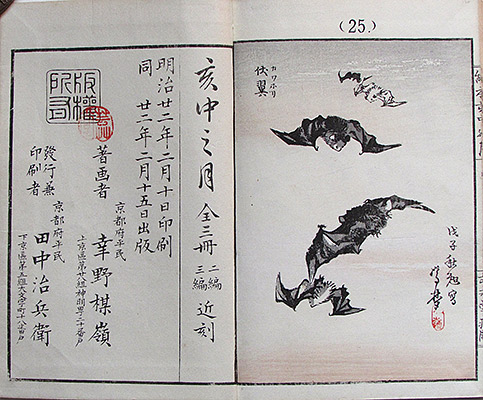 (25.)
カワホリ
伏翼
戊子秋
亥中之月 全三冊 二編 三編 近刻
明治廿二年二月十日印刷
同 廿二年二月十五日出版
版權所有
著画者
京都府平民
幸野楳嶺
發行兼
印刷者
京都府平民
田中治兵衛
下京區第五組大文字町十八番戸